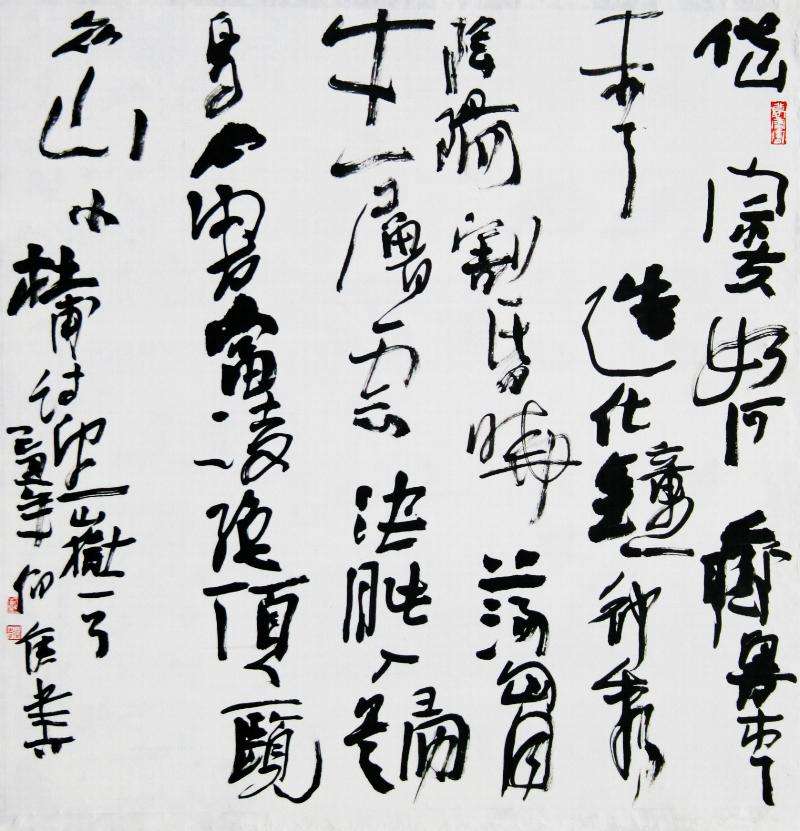 岱宗夫如何齊魯青
未了造化鐘神秀
陰陽割昏曉蕩胸
生層雲決眥入歸
鳥會當凌絕頂一覽
眾山小
杜甫詩望嶽一首
年書